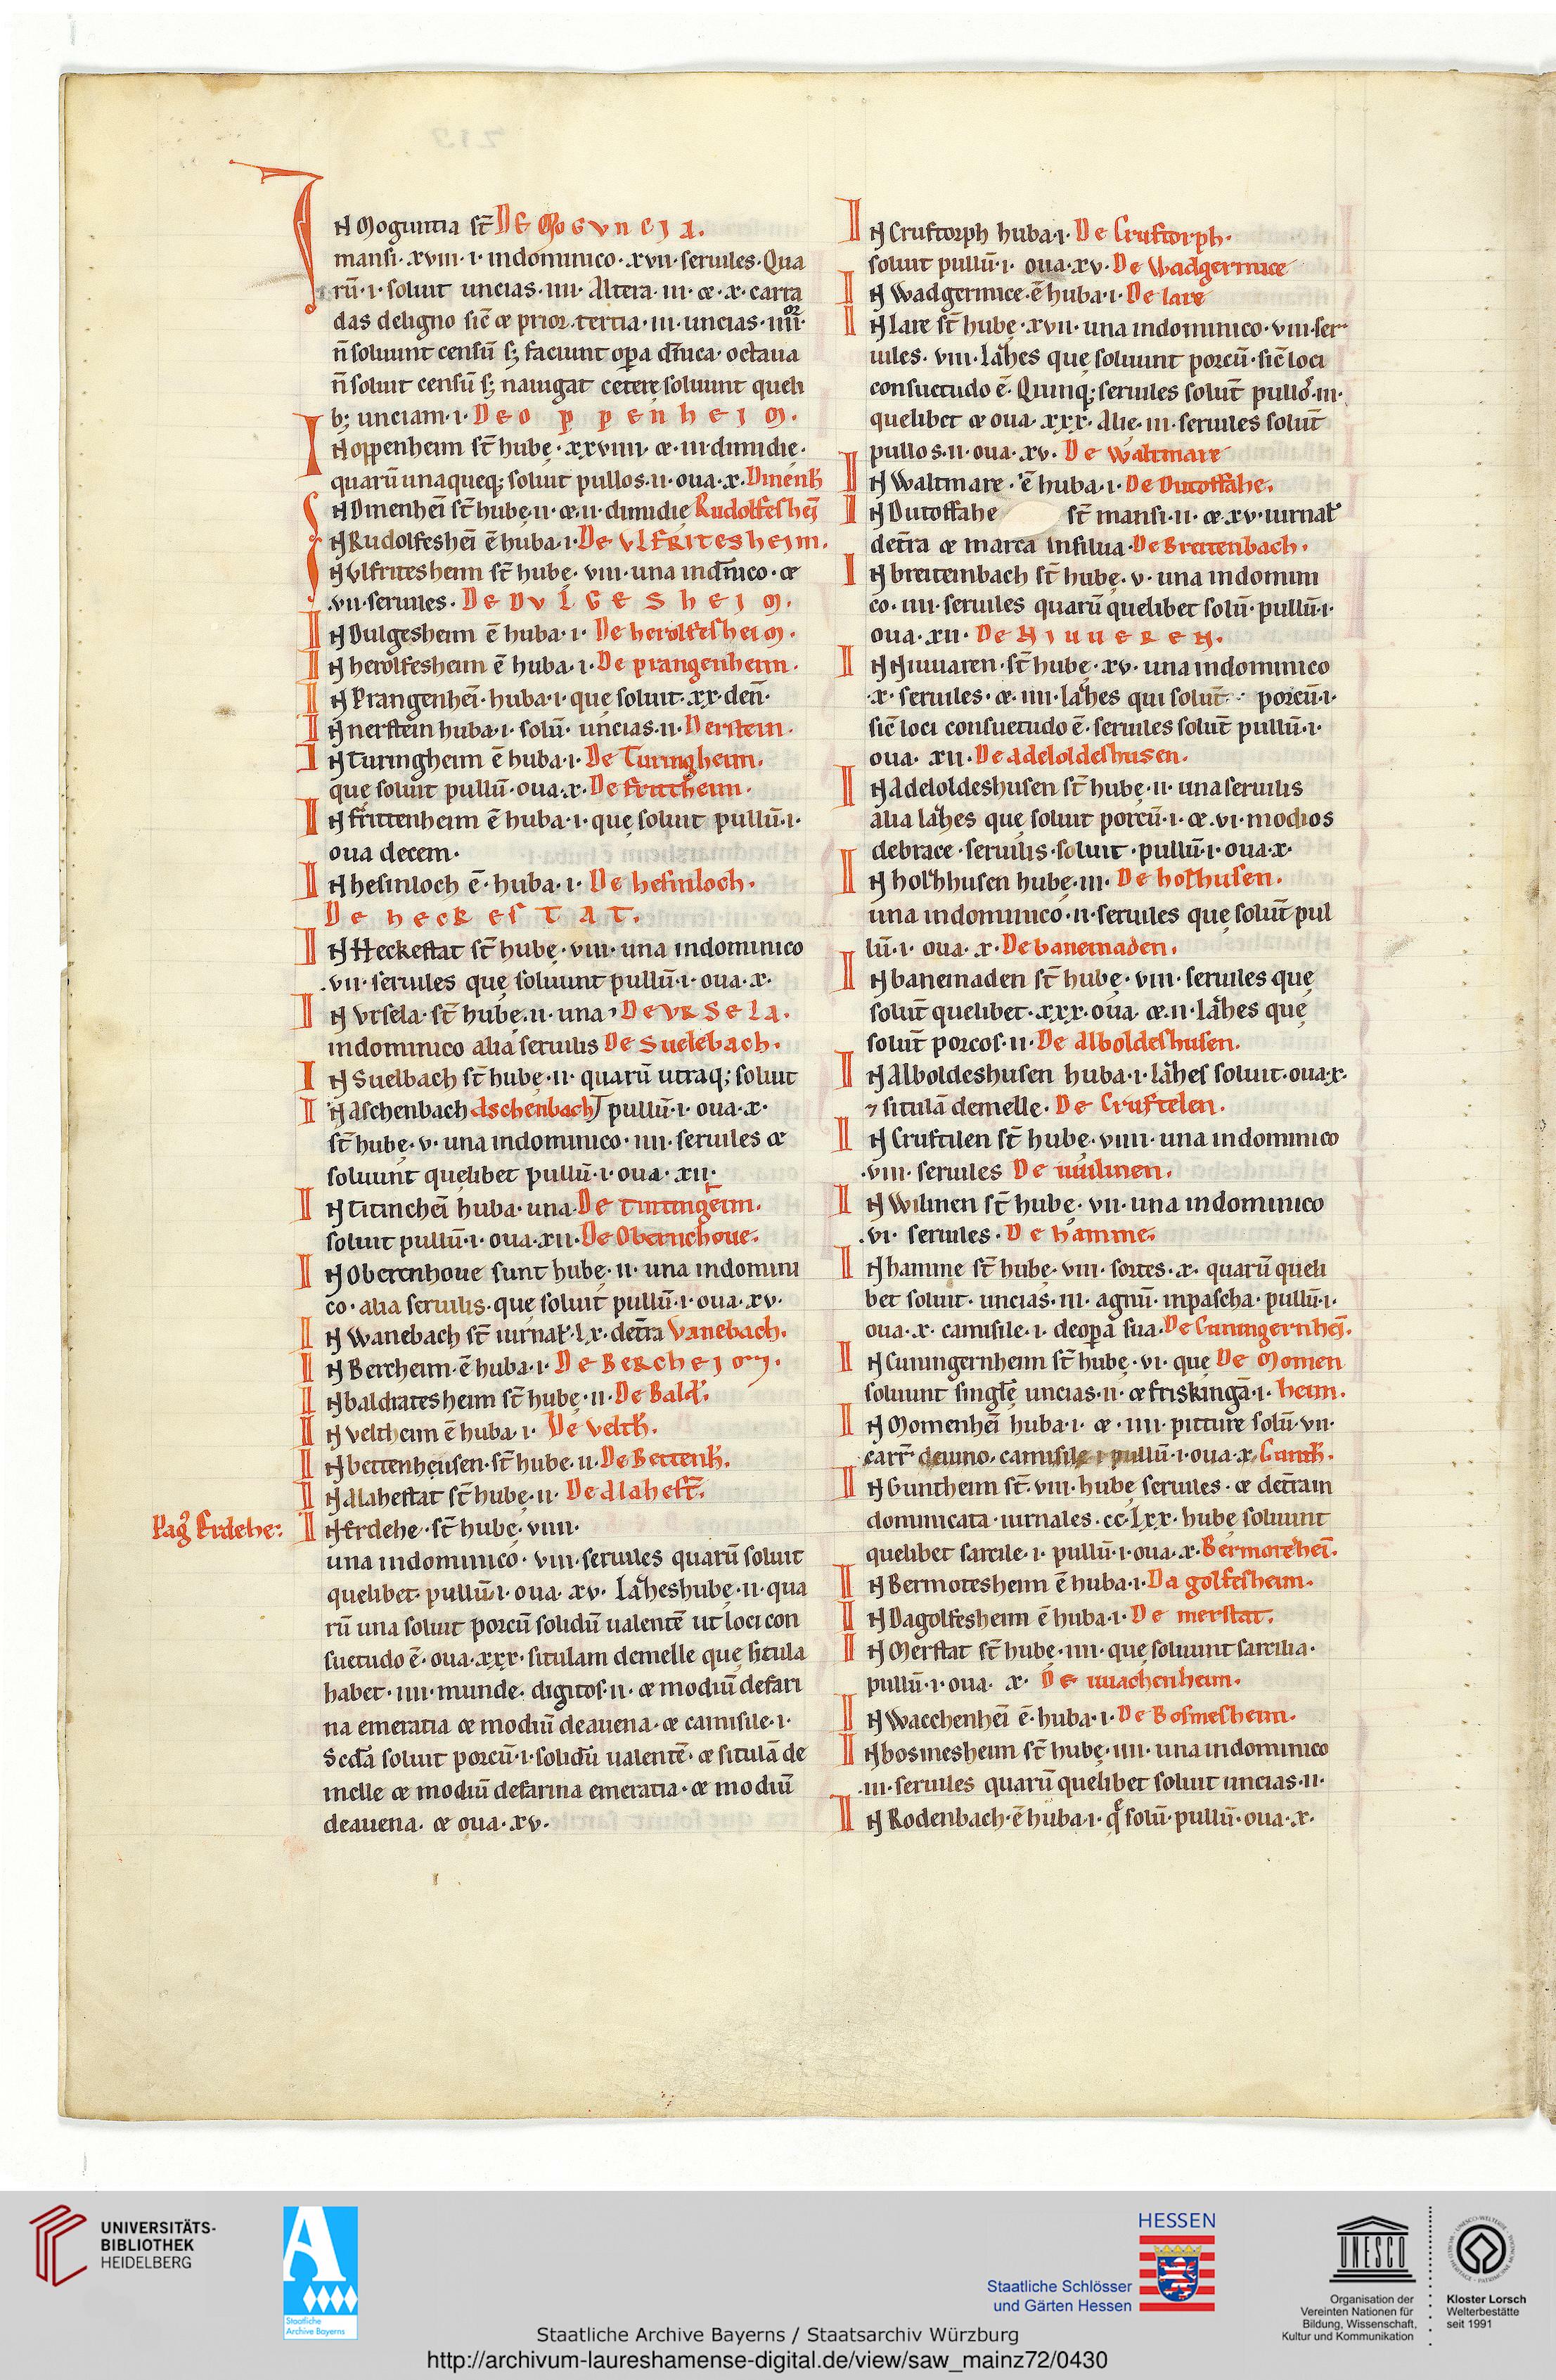 IN Moguntia st̄ DE MoGUNCIA.
mansi·xviii·i·indominico·xvii·seruiles·Qua
rū·i·soluit uncias·iiii· Altera·iii·&·x·carra
das deligno sic̄ & prior·tertia·iii·uncias·iiii·or
n̄ soluunt censū s; faciunt oꝑa dn̄ica·octaua
n̄ soluit censū s; nauigat cetere soluunt queli
b; unciam·i· De oppenheim.
IN oppenheim st̄ hubę·xxviiii·&·iii·dimidię·
quarū unaqueq; soluit pullos·ii·oua·x· Dinenh̄
IN Dinenheī st̄ hubę·ii·&·ii·dimidię Rudolfesheī
IN Rudolfesheī ē huba·i· De Ulfritesheim.
IN Vlfritesheim st̄ hubę·viii·una indn̄ico·&
·vii·seruiles· De DulGesheim.
IN Dulgesheim ē huba·i· De herolfesheim.
IN herolfesheim ē huba·i· De prangenheim.
IN Prangenheī·huba·i·quę soluit·xx·den̄·
IN nerstein huba·i·solū·uncias·ii· Derstein.
IN Turingheim ē huba·i· De Turingheim.
quę soluit pullū·oua·x· De frittheim.
IN frittenheim ē huba·i·quę soluit pullū·i·
oua decem·
IN hesinloch ē·huba·i· De hesinloch.
De heckestat.
IN Heckestat st̄ hubę·viii·una indominico
·vii·seruiles quę soluunt pullū·i·oua·x·
IN Vrsela·st̄ hubę·ii·una DeURSela.
indominico alia seruilis De Suelebach.
IN Suelbach st̄ hubę·ii·quarū utraq; soluit
IN Aschenbach Aschenbach pullū·i·oua·x·
st̄ hubę·v·una indominico·iiii·seruiles &
soluunt quęlibet pullū·i·oua·xii·
IN Titincheī huba·una· De Tittingeim.
soluit pullū·i·oua·xii· De Obernchoue.
IN Oberenhoue sunt hubę·ii·una indomini
co·alia seruilis·que soluit pullū·i·oua·xv·
IN Wanebach st̄ iurnal̄·lx·det̄ra Vanebach.
IN Bercheim·ē huba·i· De Bercheim.
IN baldratesheim st̄ hubę·ii· De Bald̄.
IN veltheim ē huba·i· De velth̄.
IN bettenheusen·st̄ hube·ii· De Bettenh̄.
IN Alahestat st̄ hubę·ii· De Alahest̄.
Paḡ Erdehe:
IN Erdehe·st̄ hubę·viiii·
una indominico·viii·seruiles quarū soluit
quelibet pullū·i·oua·xv·lāheshubę·ii·qua
rū una soluit porcū solidū ualentē ut loci con
suetudo ē·oua·xxx·situlam demelle quę situla
habet·iiii·munde·digitos·ii·& modiū defari
na emeratia & modiū deauena·& camisile·i·
Scd̄a soluit porcū·i·solidū ualentē·& situlā de
melle & modiū defarina emeratia·& modiū
deauena·& oua·xv·
IN Cruftorph huba·i· De Cruftorph.
soluit pullū·i· oua·xv· De Wadgermice
IN Wadgermice·ē huba·i· De lare
IN lare st̄ hubę·xvii·una indominico·viii·ser
uiles·viii·lāhes quę soluunt porcū·sic̄ loci
consuetudo ē·Quinq; seruiles solut̄ pullo̊·iii·
quelibet & oua·xxx·alie·iii·seruiles solut̄
pullos·ii·oua·xv· De Waltmare
IN Waltmare·ē huba·i· De Dutoffahe.
IN Dutoffahe st̄ mansi·ii·&·xv·iurnal̄
det̄ra & marca insilua· De Breitenbach.
IN breitembach st̄ hubę·v·una indomini
co·iiii·seruiles quarū quelibet solū·pullū·i·
oua·xii· De Niuueren.
IN Niuuaren·st̄ hubę·xv·una indominico
·x·seruiles·&·iiii·lāhes qui solut̄ porcū·i·
sic̄ loci consuetudo ē·seruiles soluт̄ pullū·i·
oua·xii· De Adeloldeshusen.
IN Adeloldeshusen st̄ hubę·ii·una seruilis
alia lāhes quę soluit porcū·i·&·vi·modios
debrace·seruilis·soluit·pullū·i·oua·x·
IN holzhusen hubę·iii· De holhusen.
una indominico·ii·seruiles quę solut̄ pul
lū·i· oua·x· De banemaden.
IN banemaden st̄ hubę·viii·seruiles quę
solut̄ quelibet·xxx·oua·&·ii·lāhes quę
solut̄ porcos·ii· De Alboldeshusen.
IN Alboldeshusen huba·i·lāhes soluit·oua·x·
⁊ situlā demelle· De Cruftelen.
IN Cruftilen st̄ hubę·viiii·una indominico
·viii·seruiles De uuilinen.
IN Wilinen st̄ hubę·vii·una indominico
·vi·seruiles· De hamme.
IN hamme st̄ hubę·viii·sortes·x·quarū queli
bet soluit·uncias·iii·agnū·inpascha·pullū·i·
oua·x·camisile·i·deoꝑa sua· De Cuningernheī.
IN Cuningernheim st̄ hubę·vi·quę De Momen
soluunt singlę̄ uncias·ii·& friskingā·i· heim.
IN Momenheī huba·i·&·iiii·picture solū·vii·
carr̄ deuino·camisile i pullū·i·oua·x· Gunth̄.
IN Guntheim st̄·viii·hubę seruiles·& det̄ram
dominicata·iurnales·cc·lxx·hubę soluunt
quelibet sarcile·i·pullū·i·oua·x· Bermotesheī.
IN Bermotesheim ē huba·i· Dagolfesheim.
IN Dagolfesheim ē huba·i· De merstat.
IN Merstat st̄ hubę·iiii·quę soluunt sarcilia·
pullū·i·oua· x· De uuachenheim.
IN Wacchenheī ē·huba·i· De Bosinesheim.
IN bosinesheim st̄ hubę·iiii·una indominico
·iii·seruiles quarū quelibet soluit uncias·ii·
IN Rodenbach·ē huba·i·q̄ solū·pullū·oua·x·
UNIVERSITÄTS-
BIBLIOTHEK
HEIDELBERG
Staatliche
Archive Bayerns
HESSEN
Staatliche Schlösser
und Gärten Hessen
UNESCO
Organisation der
Vereinten Nationen für
Bildung, Wissenschaft,
Kultur und Kommunikation
Kloster Lorsch
Welterbestätte
seit 1991
Staatliche Archive Bayerns / Staatsarchiv Würzburg
http://archivum-laureshamense-digital.de/view/saw_mainz72/0430